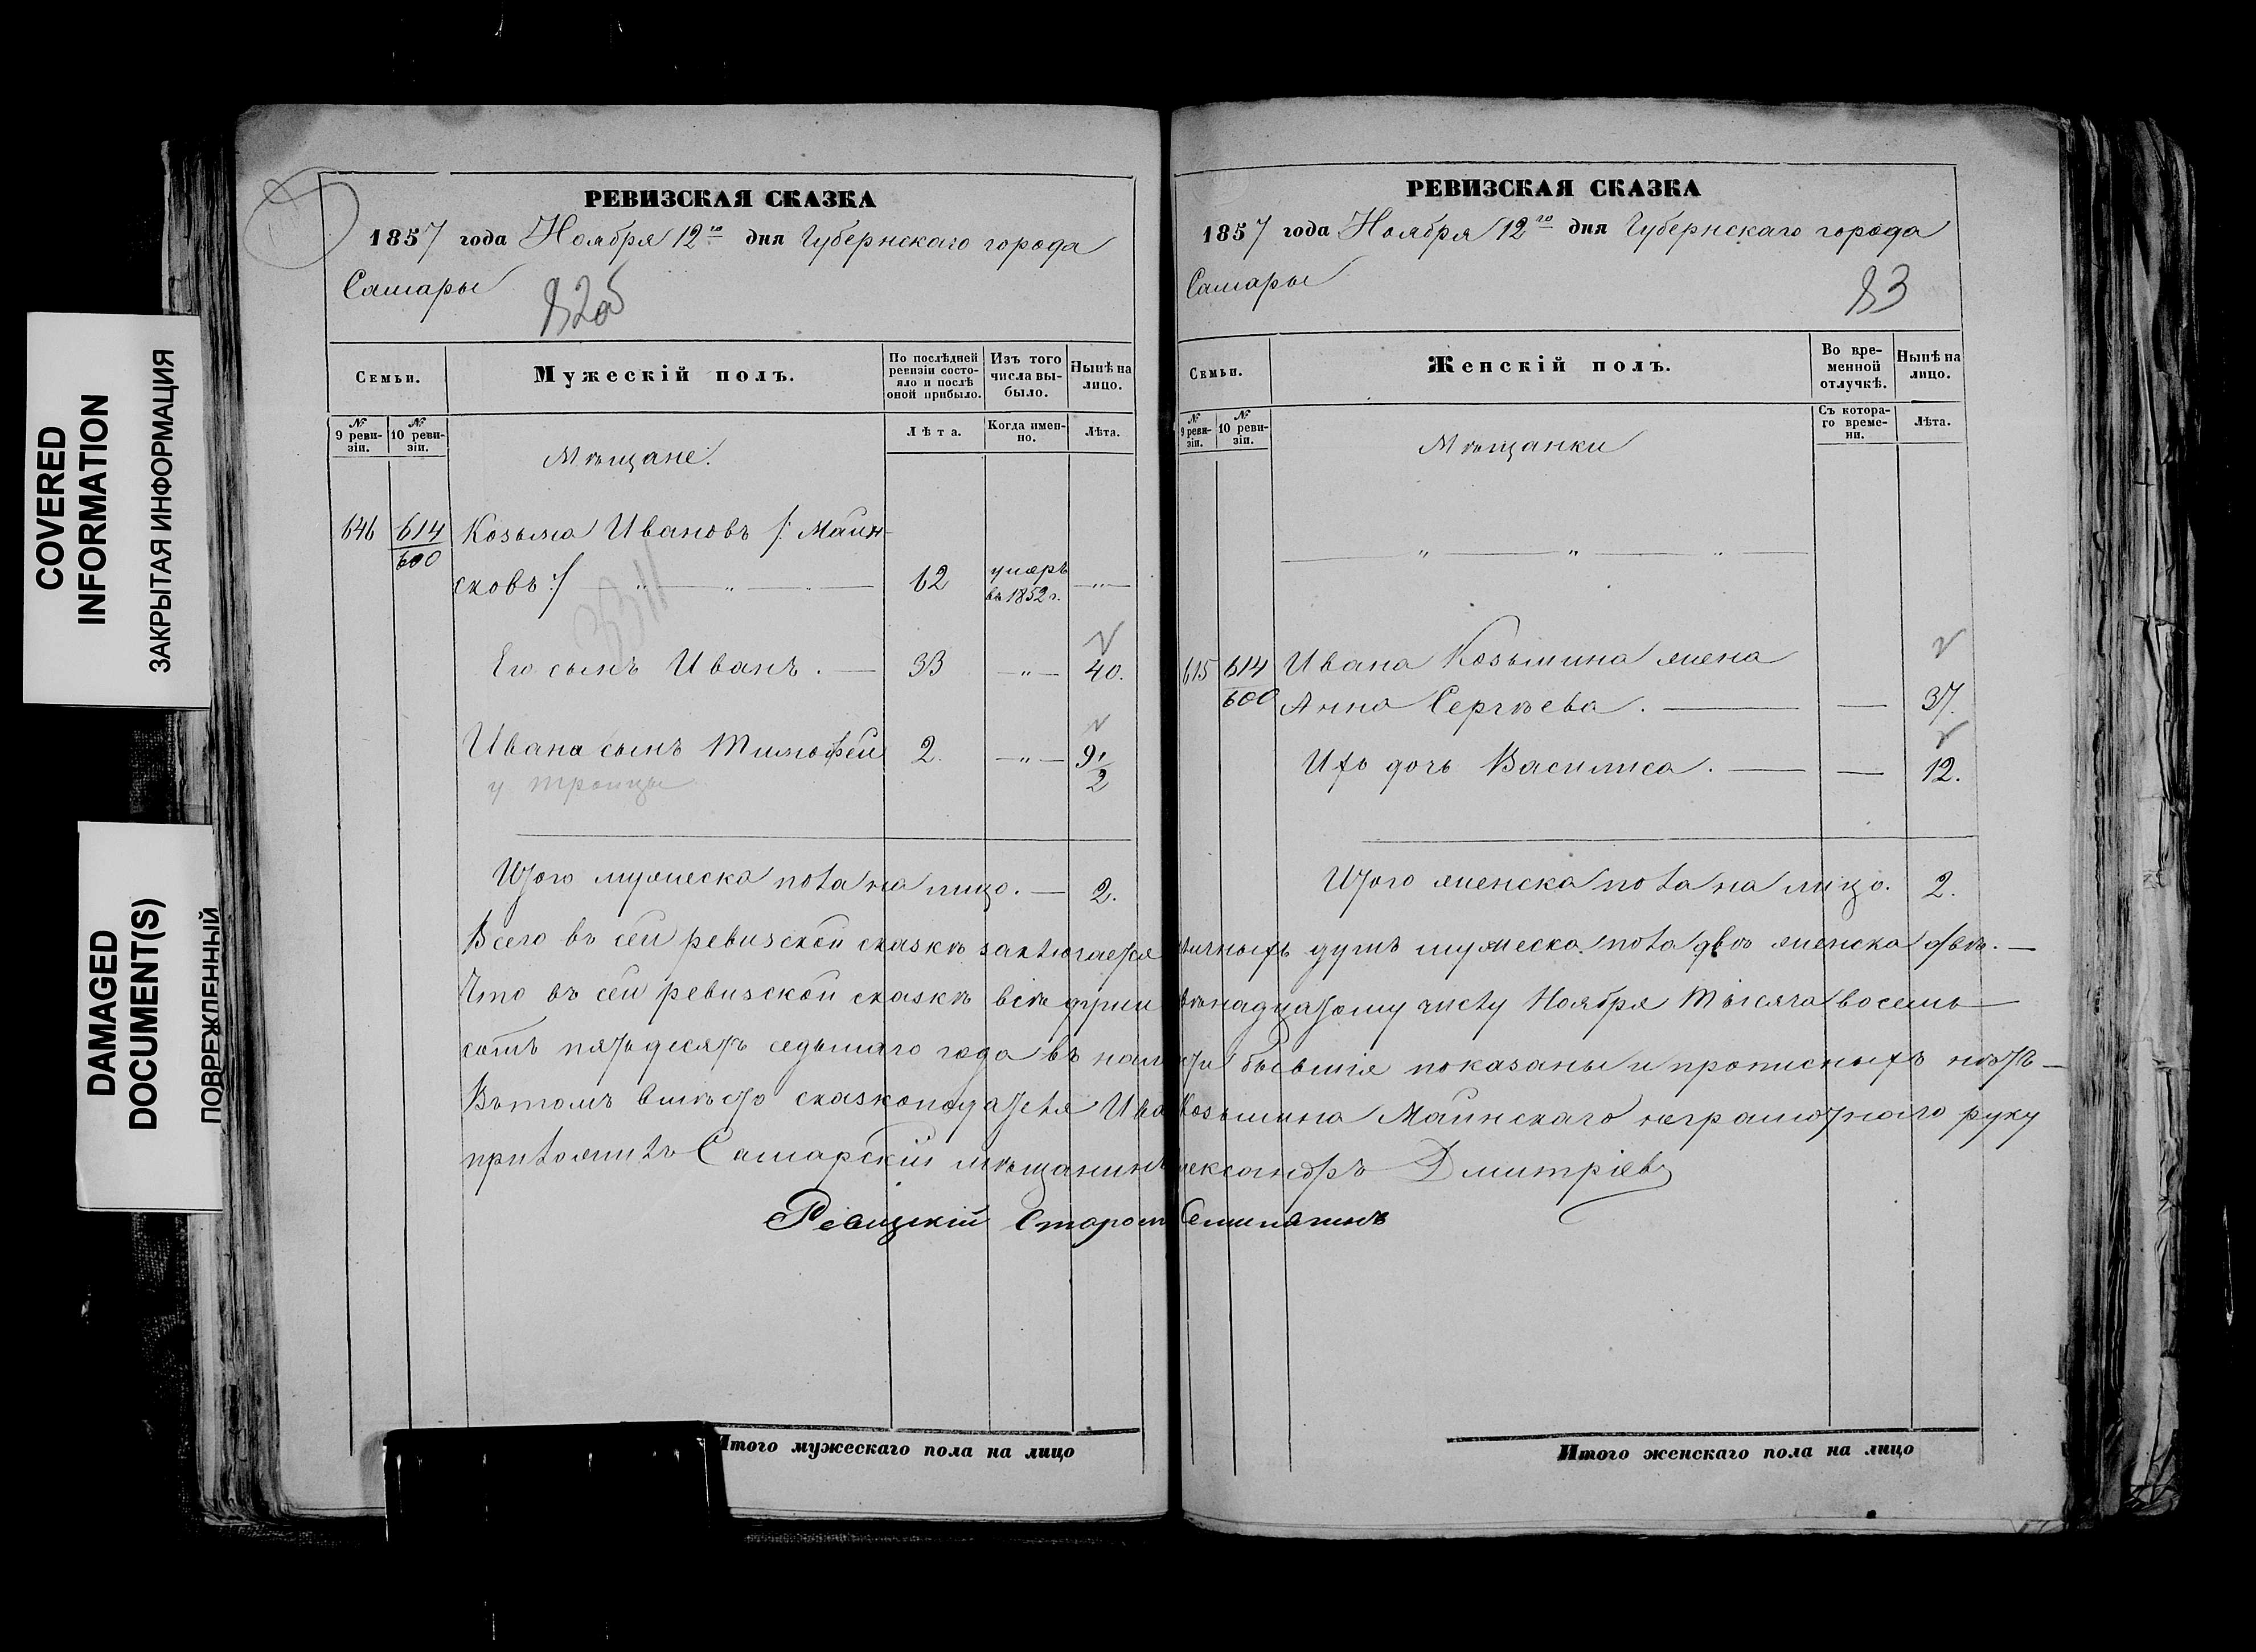 COVERED
INFORMATION
ЗАКРЫТАЯ ИНФОРМАЦИЯ
DAMAGED
DOCUMENT(S)
ПОВРЕЖДЕННЫЙ
РЕВИЗСКАЯ СКАЗКА
1857 года Ноября 12го дня Губернскаго города
Самары
82об
Семьи.
Мужескій полъ.
По послѣдней ревизіи состояло и послѣ оной прибыло.
Изъ того числа выбыло.
Нынѣ на лицо.
№ 9 ревизіи.
№ 10 ревизіи.
Мѣщане.
Лѣта.
Когда именно.
Лѣта.
646 614 Козьма Ивановъ /: Маин-
600 сковъ :/ 62 умеръ въ 1852 г. —„—
Его сынъ Иванъ. — 33 —„— 40.
Ивана сынъ Тимофей 2. —„— 9 1/2
у Троицы
Итого мужеска пола на лицо. — 2.
Всего въ сей ревизской сказкѣ заключается
Что въ сей ревизской сказкѣ всѣ души
сотъ пятьдесятъ седьмаго года въ нали
Въ томъ вмѣсто сказкоподателя Ива
приложилъ Самарскій мѣщанинъ
Ревизскій Старост
Итого мужескаго пола на лицо
РЕВИЗСКАЯ СКАЗКА
1857 года Ноября 12го дня Губернскаго города
Самары
83
Семьи.
Женскій полъ.
Во временной отлучкѣ.
Нынѣ на лицо.
№ 9 ревизіи.
№ 10 ревизіи.
Мѣщанки
Съ котораго времени.
Лѣта.
615 614 Ивана Козьмина жена
600 Анна Сергѣева. — — 37.
Ихъ дочь Василиса. — — 12.
Итого женска пола на лицо. 2.
личныхъ душъ мужеска пола двѣ женска двѣ. —
вѣнадцатому числу Ноября Тысяча восемь —
сти бывшія показаны и прописныхъ нѣтъ —
Козьмина Маинскаго неграмотнаго руку
лександръ Дмитріевъ
Итого женскаго пола на лицо